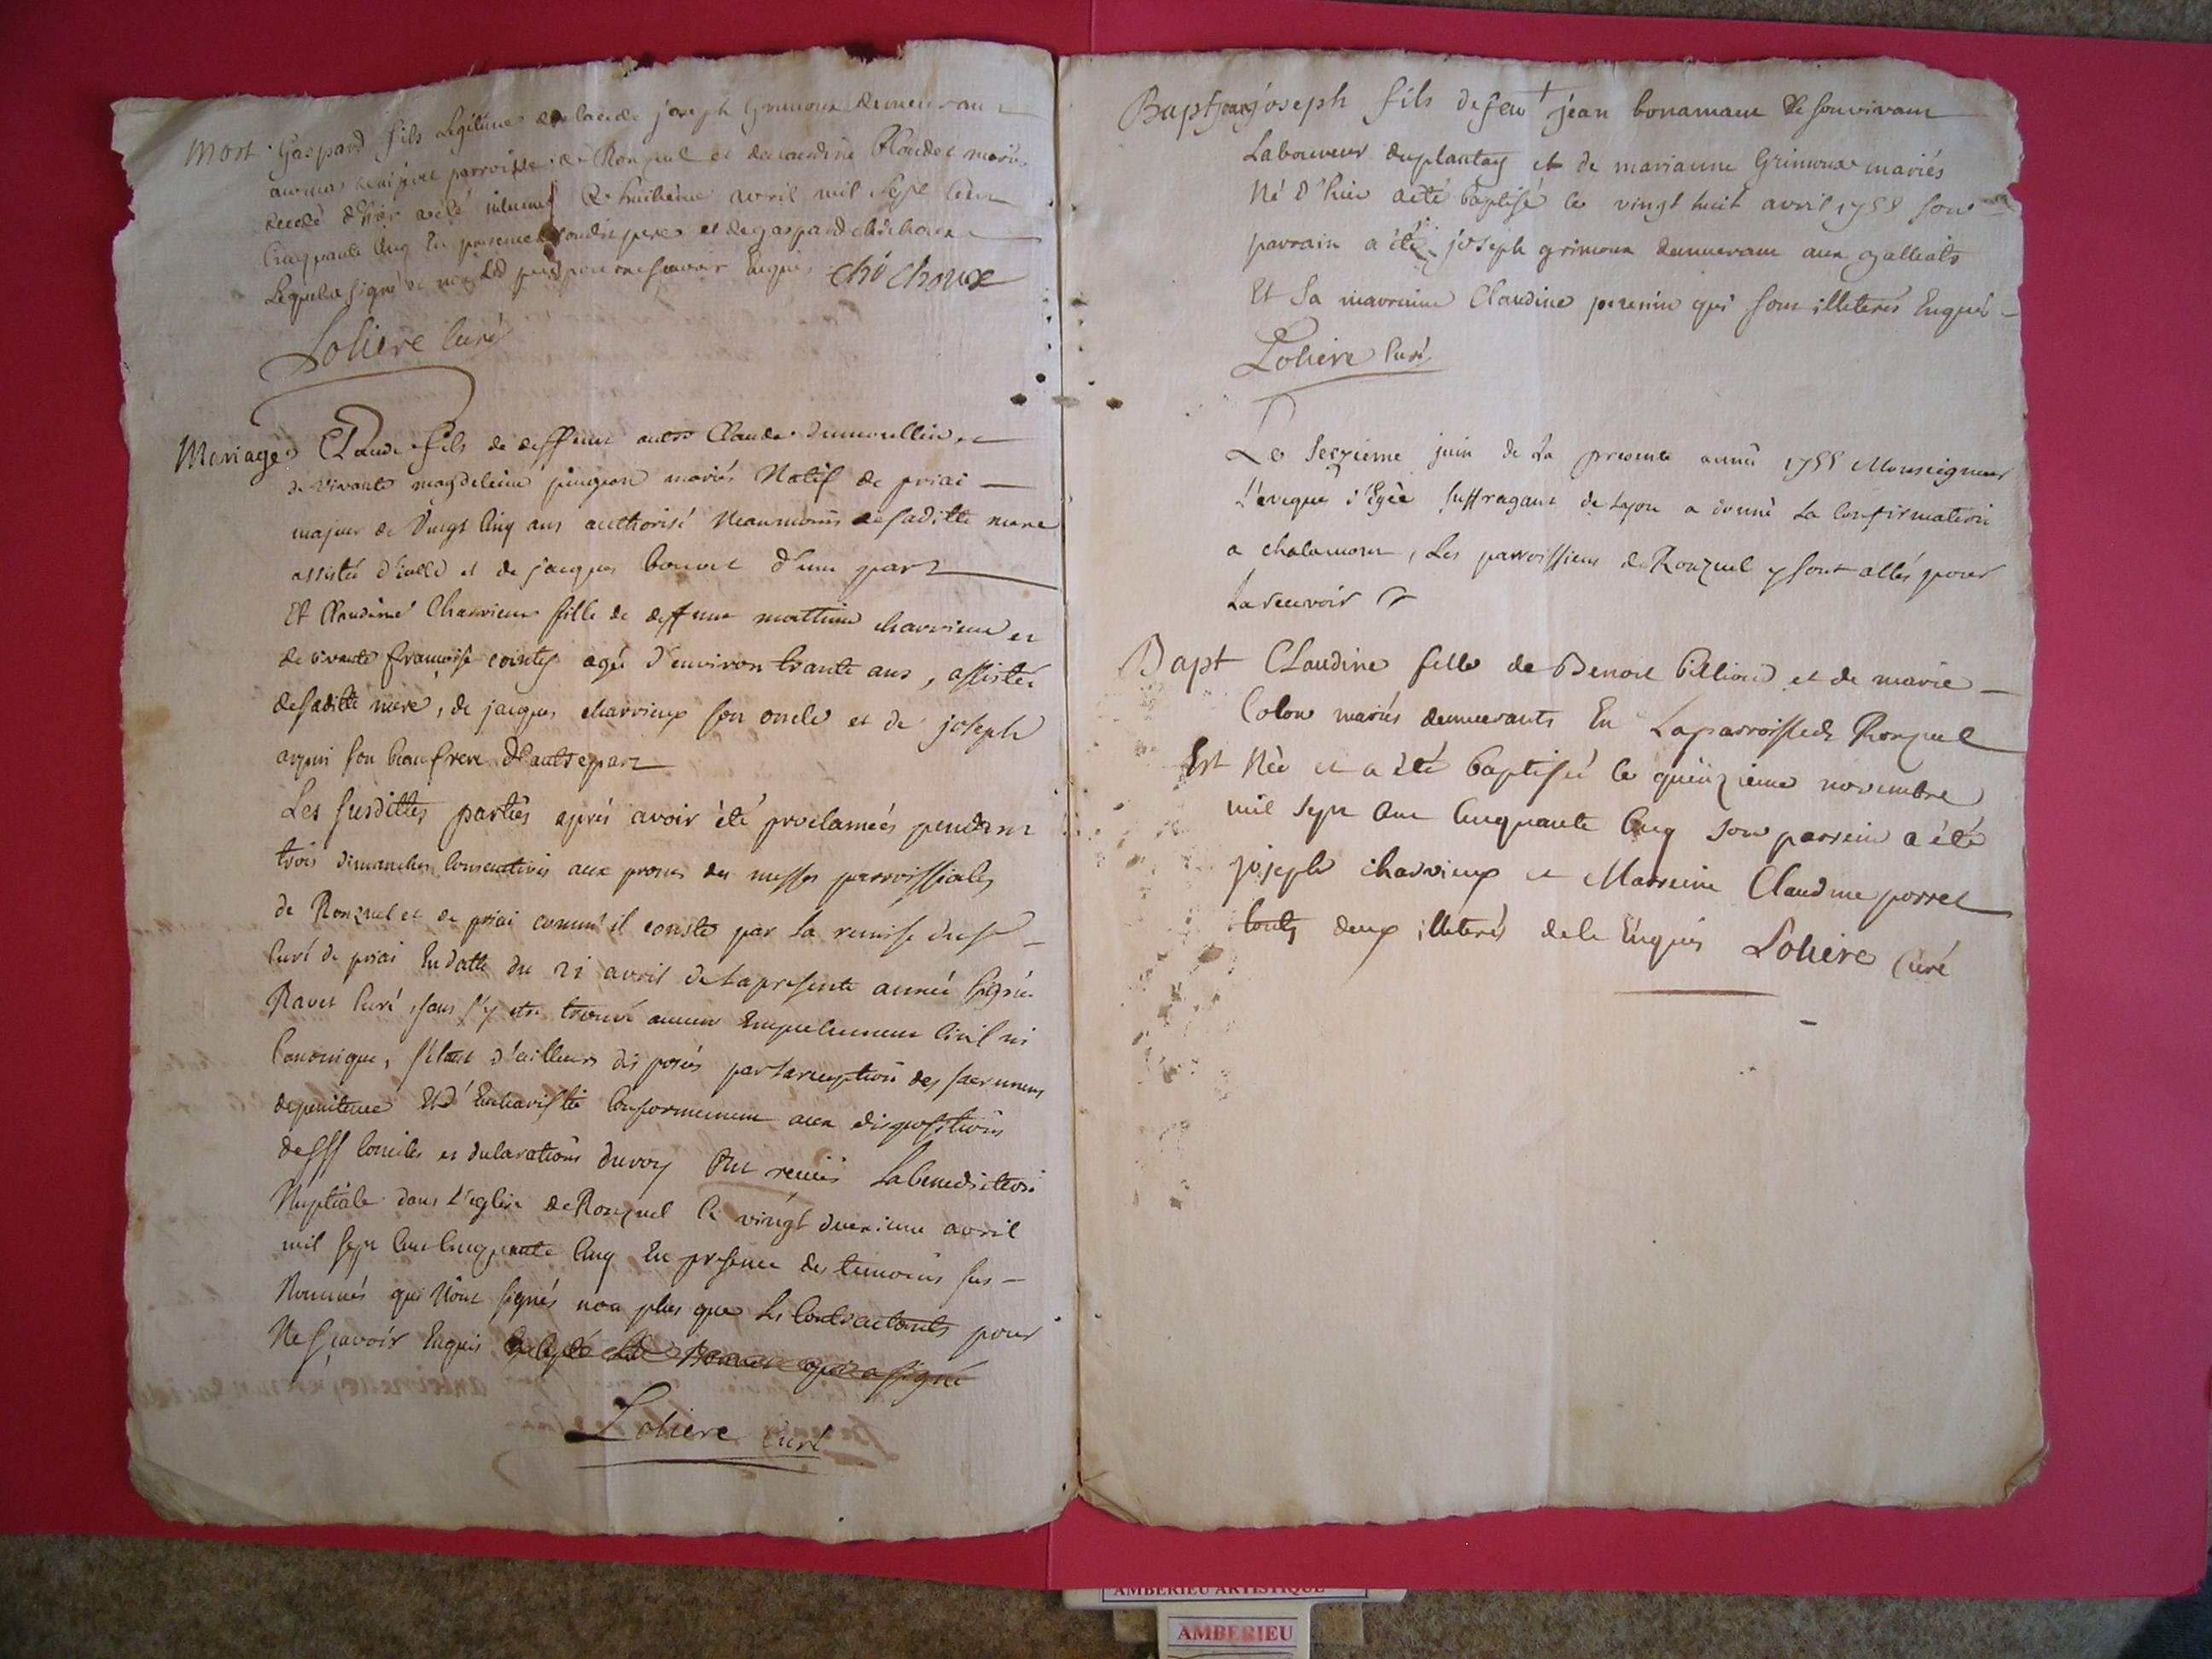 Mort Gaspard fils Legitime de joseph Grimoux demeurant
parroisse de Ronzuel et de Claudine mariés
decedé d'hier a été inhumé Le huitieme avril mil Sept Cent
Cinquante Cinq En presence dudit pere et de gaspard chichoux
Lequel a signé et non Led pere pour ne sçavoir Enquis chichoux
Loliere Curé
Mariage Claude fils de deffunt autre Claude dumoullin et
de vivante magdeleine pingeon mariés Natif de priai
majeur de Vingt Cinq ans authorisé Neanmoins de saditte mere
assisté d'icelle et de jacques bonnet d'une part
Et Claudine Charvieux fille de deffunt mathieu charvieux et
de vivante francoise cointy agée d'environ trante ans, assistée
de saditte mere, de jacques charvieux son oncle et de joseph
son beaufrere d'autre part
Les susdittes parties aprés avoir été proclameés pendant
trois dimanches Consecutives aux prones des messes parroissiales
de Ronzuel et de priai comm'il conste par la remise du sr
Curé de priai En datte du 21 avril de la presente année Signé
Ravet Curé, sans s'y etre trouvé aucun Empechement Civil ni
Canonique, s'étant d'ailleurs disposés par la reception des sacremens
de penitence Et d'Eucharistie Conformement aux dispositions
des SS Conciles et declarations du roy Ont reçus La benediction
Nuptiale dans L'eglise de Ronzuel le vingt deuxieme avril
mil Sept Cent Cinquante Cinq En presence des temoins sus
Nommés qui N'ont signés non plus que les Contractants pour
Ne sçavoir Enquis
Loliere Curé
Bapt jean joseph fils de feu jean bonamant de son vivant
Laboureur du plantay et de marianne Grimoux mariés
Né d'hier a été baptisé le vingt huit avril 1755 son
parrain a été joseph grimoux demeurant aux galliats
Et Sa marraine Claudine perenin qui sont illeterés Enquis
Loliere Curé
Le Seizieme juin de La presente année 1755 Monseigneur
L'eveque d'Egée suffragant de Lyon a donné La Confirmation
a chalamont, Les parroissiens de Ronzuel y sont allés pour
La recevoir
Bapt Claudine fille de Benoit billion et de marie
Colon mariés demeurants En La parroisse de Ronzuel
Est Née et a été baptisée le quinzieme novembre
mil Sept Cent Cinquante Cinq Son parrein a été
joseph charvieux et Marreine Claudine porret
touts deux illeterés de ce Enquis Loliere Curé
AMBERIEU ARTISTIQUE
AMBERIEU